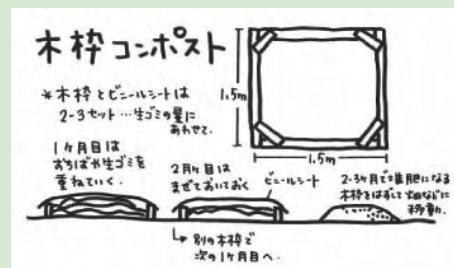 木枠コンポスト
*木枠とビニールシートは
2-3セット…生ゴミの量に
あわせて.
1.5m
1.5m
1ヶ月目は
おちばや生ゴミを
重ねていく.
2月ヶ目は
まぜておいておく
ビニールシート
2-3ヶ月で堆肥になる
木枠をはずして畑などに
移動.
別の木枠で
次の1ヶ月目へ.